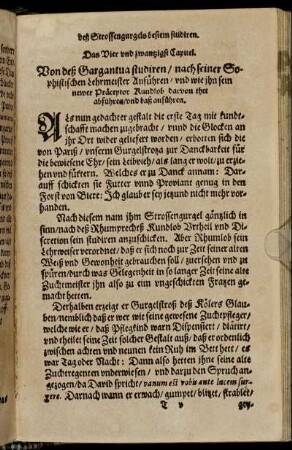 deß Strossengurgels bestem studiren.
Das Vier vnd zwantzigst Capitel.
Von deß Gargantua studiren / nach seiner So-
phistischen Lehrmeister Anführen / vnd wie jhn sein
newer Præceptor Kundlob darvon thet
abführen / vnd baß anführen.
Als nun gedachter gestalt die erste Tag mit kund-
schafft machen zugebracht / vnnd die Glocken an
jhr Ort wider geliefert worden / erbotten sich die
von Pariß / vnserm Gurgelstroza zur Danckbarkeit für
die bewisene Ehr / sein Leibroch / als lang er wolt / zu erzie-
hen vnd füttern. Welches er zu Danck annam: Dar-
auff schickten sie Futter vnnd Proviant genug in den
Forst von Biere: Ich glaub er sey jetzund nicht mehr vor-
handen.
Nach diesem nam jhm Strossengurgel gäntzlich in
sinn / nach deß Rhumprechts Kundlob Vrtheil vnd Dis-
cretion sein studiren anzuschicken. Aber Rhumlob sein
Lehrweiser verordnet / daß er sich noch zur Zeit seiner alten
Weiß vnd Gewonheit gebrauchen soll / zuersehen vnd zu
spüren / durch was Gelegenheit in so langer Zeit seine alte
Zuchtmeister jhn also zu eim vngschickten Fragen ge-
macht hetten.
Derhalben erzeigt er Gurgelstroß deß Kölers Glau-
ben / nemblich daß er wer wie seine gewesene Zuchtpfleger /
welche wie er / daß Pflegkind warn Dispensiert / blätirt /
vnd theilet seine Zeit solcher Gestalt auß / daß er ordenlich
zwischen achten vnd neunen kein Ruh im Bett hett / es
war Tag oder Nacht: Dann also hetten jhne seine alte
Zuchtregenten vnderwiesen / vnd darzu den Spruch an-
gezogen / da David spricht / vanum est vobis ante lucem sur-
gere. Darnach wann er erwacht / gumpet / blitzt / strablet /
T v
gey-